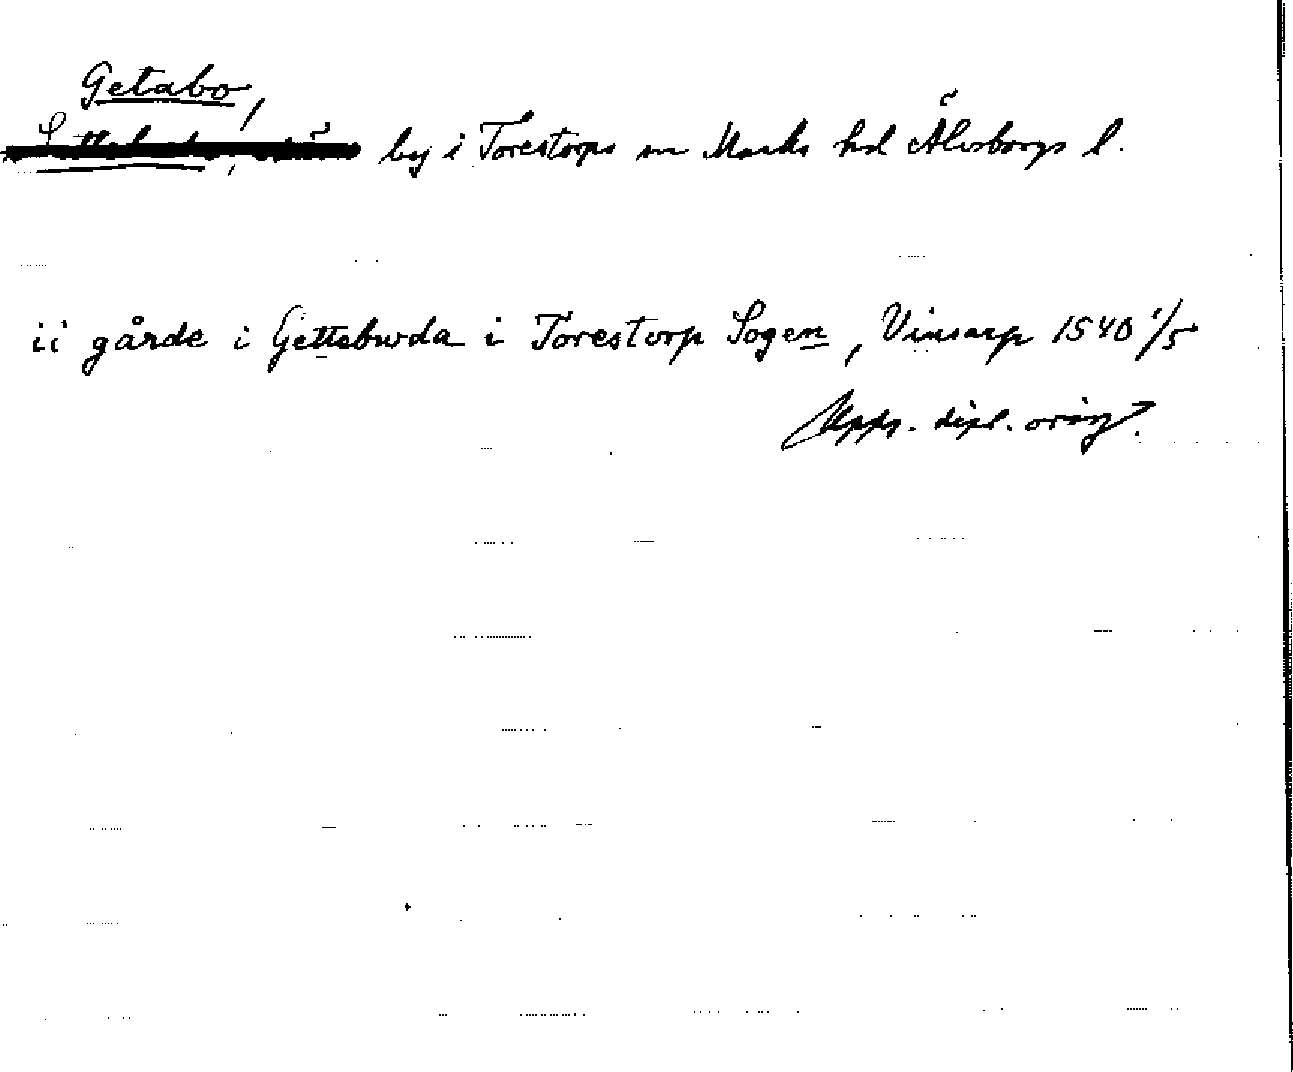 Getabo,
by i Torestorps sn Marks hd Älvsborgs l.
ii gårde i Getteburda i Torestorp Sogen, Vinsarp 1540 1/5
Upps. dipl. orig.